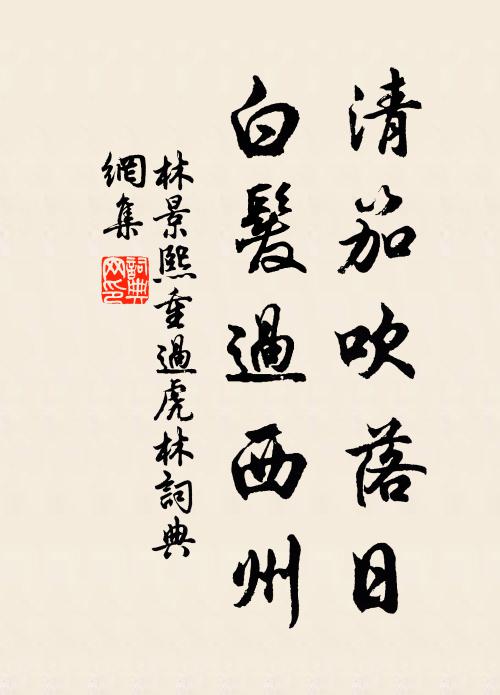 清笳吹落日
白髮過西州
林景熙重過虎林詞典
網集
詞典網印